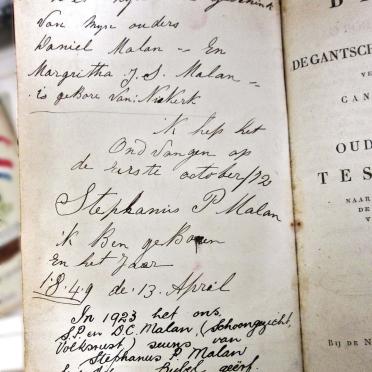 Van Myn ouders
Daniel Malan - En
Margritha J. S. Malan -
is geBore Van: Niekerk
ik hep het
Ond Vangen op
de Eerste october/72
Stephanus P Malan
ik Ben geBoren
En het Jaar
1.8.4.9 de. 13. April
In 1923 het ons,
S.P. en D.C. Malan, (Schoongezicht,
Volksrust) seuns van
Stephanus P. Malan
Bybel geërf.
B
DE GANTSCH
VE
CAN
OUD
TES
NAAR
DE
V
BIJ DE N